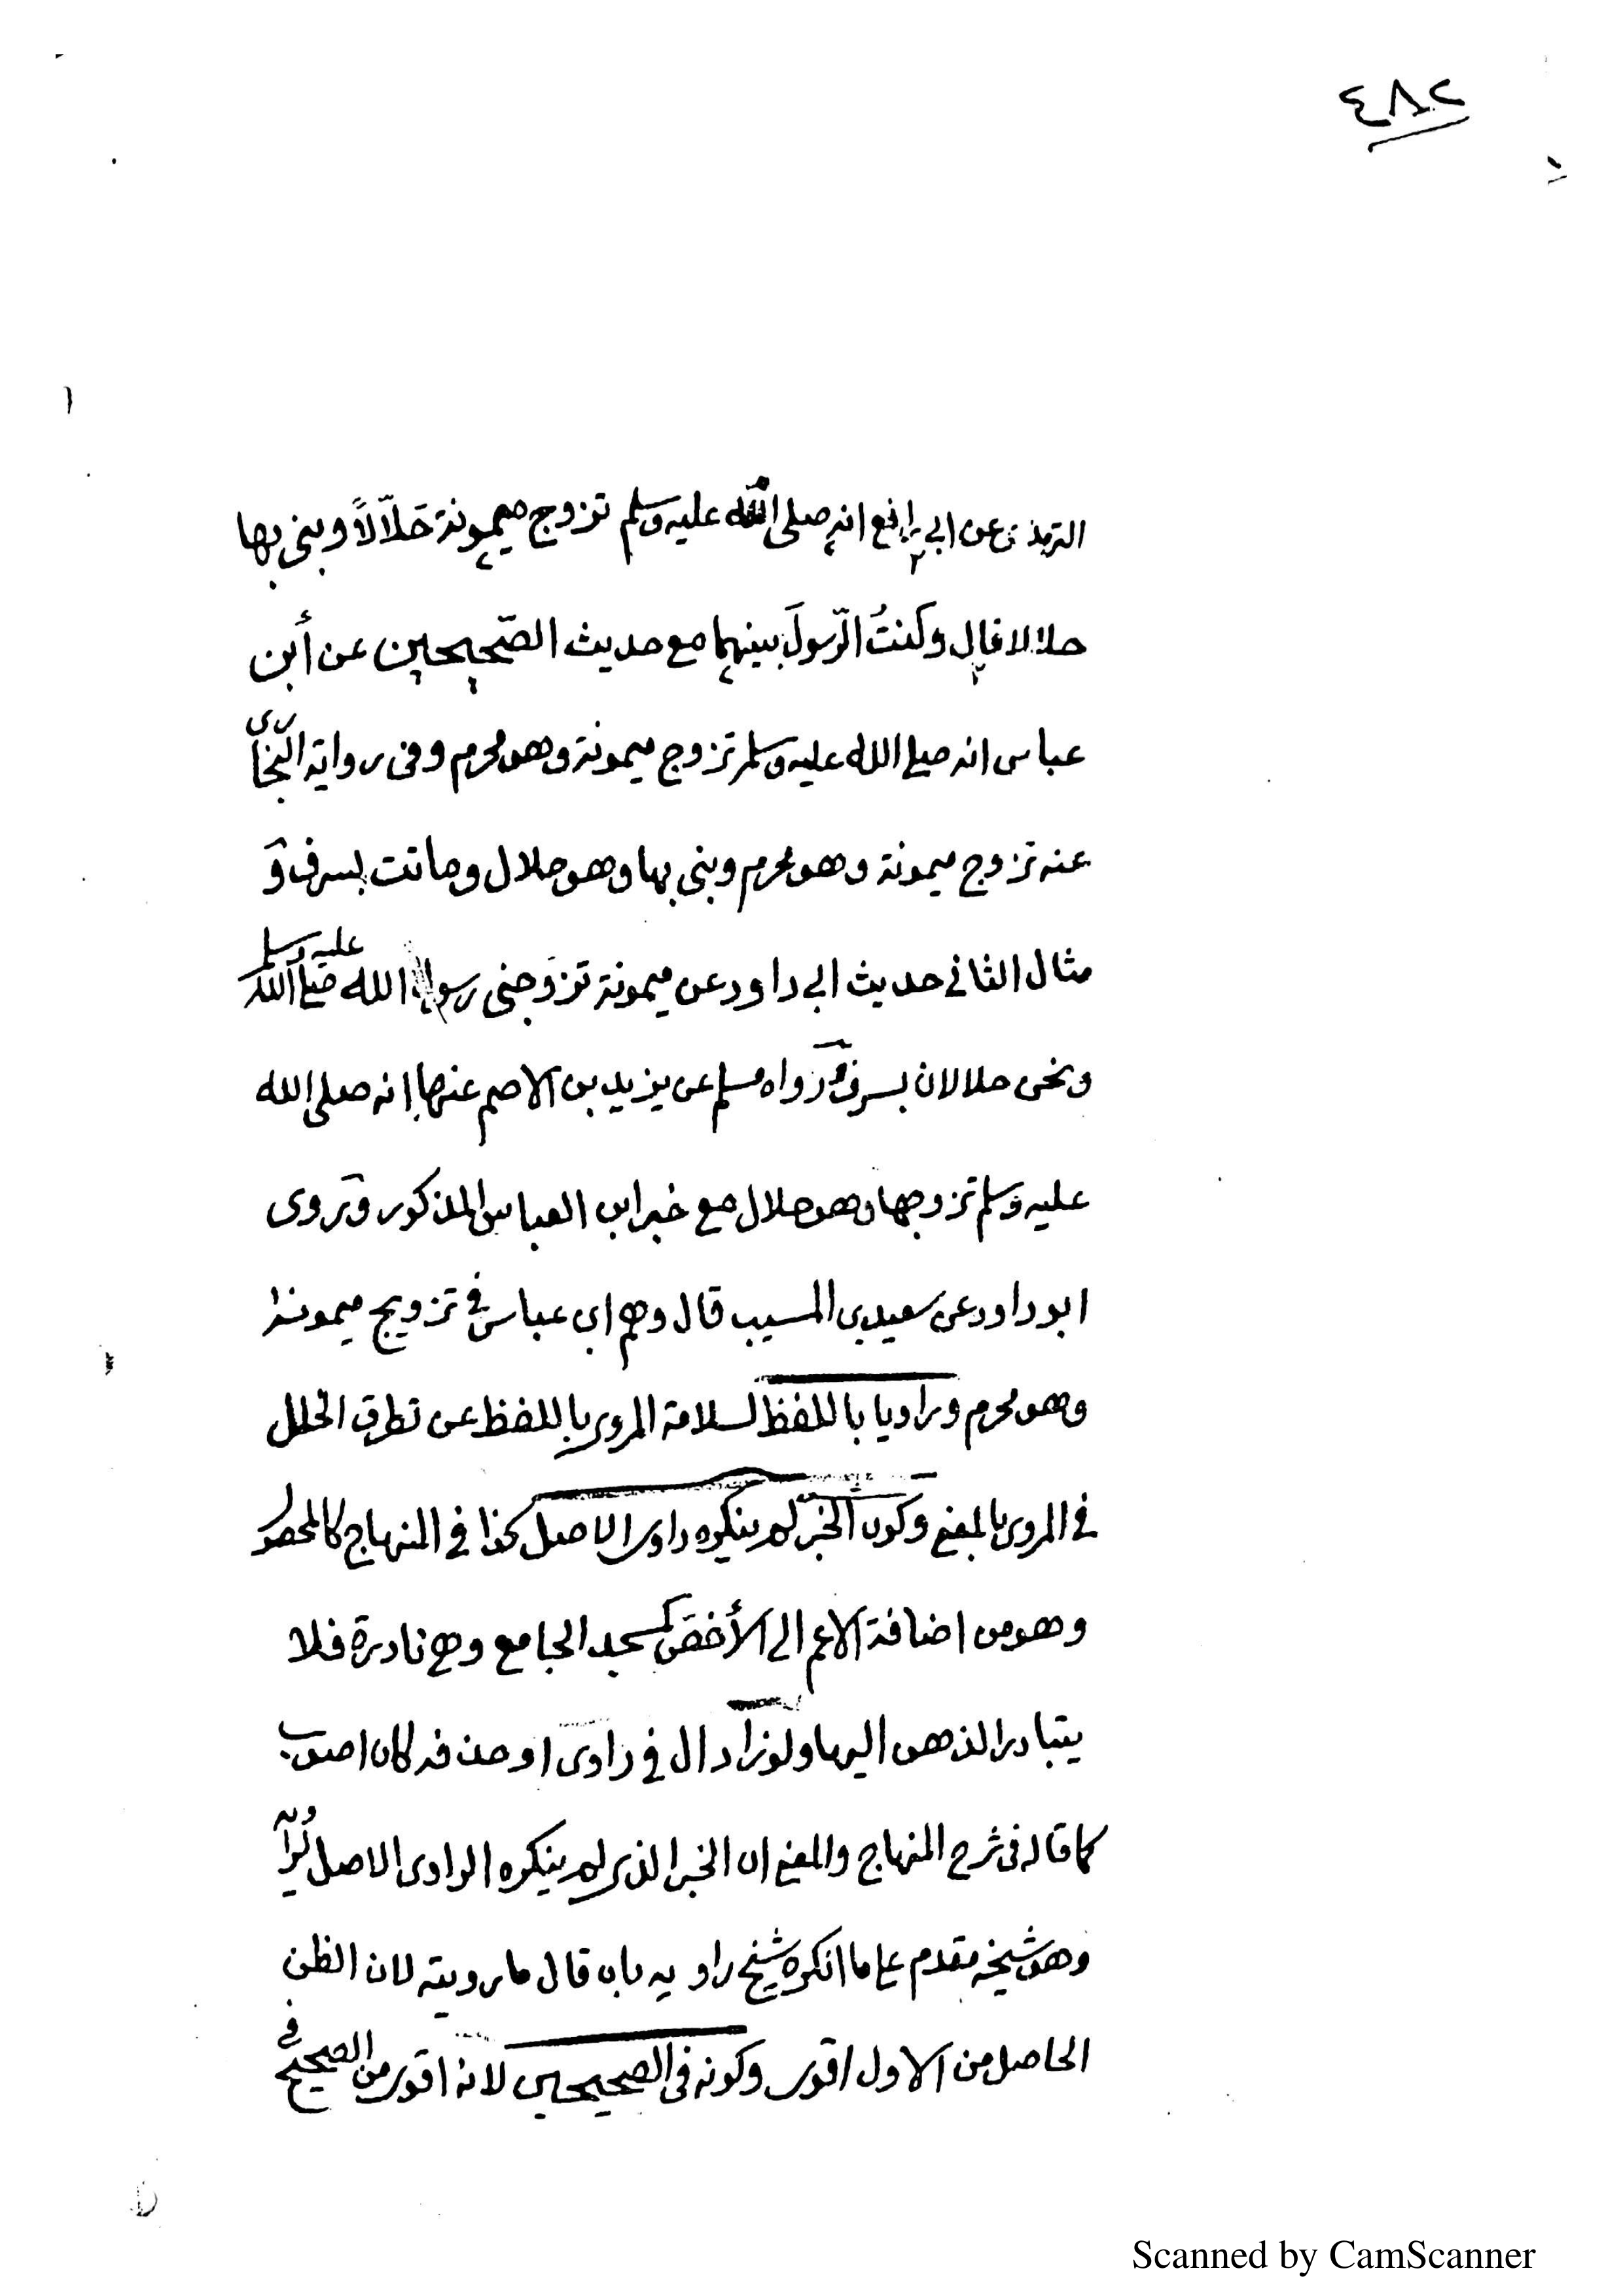 ٤٨٢
الترمذى عن ابى رافع انه صلى الله عليه وسلم تزوج ميمونة حَلاَلاً وبنى بها
حلالا قال وكنتُ الرّسولَ بينهما مع حديث الصّحيحين عن أبن
عباس انه صلى الله عليه وسلم تزوج ميمونة وهو محرم وفى رواية البخارى
عنه تزوج ميمونة وهو محرم وبنى بها وهو حلال وماتت بسرف و
مثال الثانى حديث ابى داود عن ميمونة تزوجنى رسول الله صلى الله عليه وسلم
ونحن حلالان بسرف ورواه مسلم عن يزيد بن الاصم عنها انه صلى الله
عليه وسلم تزوجها وهو حلال مع خبر ابن العباس المذكور وروى
ابو داود عن سعيد بن المسيب قال وهم ابن عباس فى تزويج ميمونة
وهو محرم وراويا باللفظ لسلامة المروى باللفظ عن تطرق الخلل
فى المروى بالمعنى وكون الخبر لم ينكره راوى الاصل كذا فى المنهاج كالمحصول
وهو من اضافة الاعم الى الأخصّ كمسجد الجامع وهى نادرة فلا
يتبادر الذهن اليها ولو زاد ال فى راوى او حذفه كان اصوب
كما قاله فى شرح المنهاج والمعنى ان الخبر الذى لم ينكره الراوى الاصل لراويه
وهو شيخه مقدم على ما انكره شيخ راويه بان قال ما رويته لان الظن
الحاصل من الاول اقوى وكونه فى الصحيحين لانه اقوى من الصحيح فى
Scanned by CamScanner